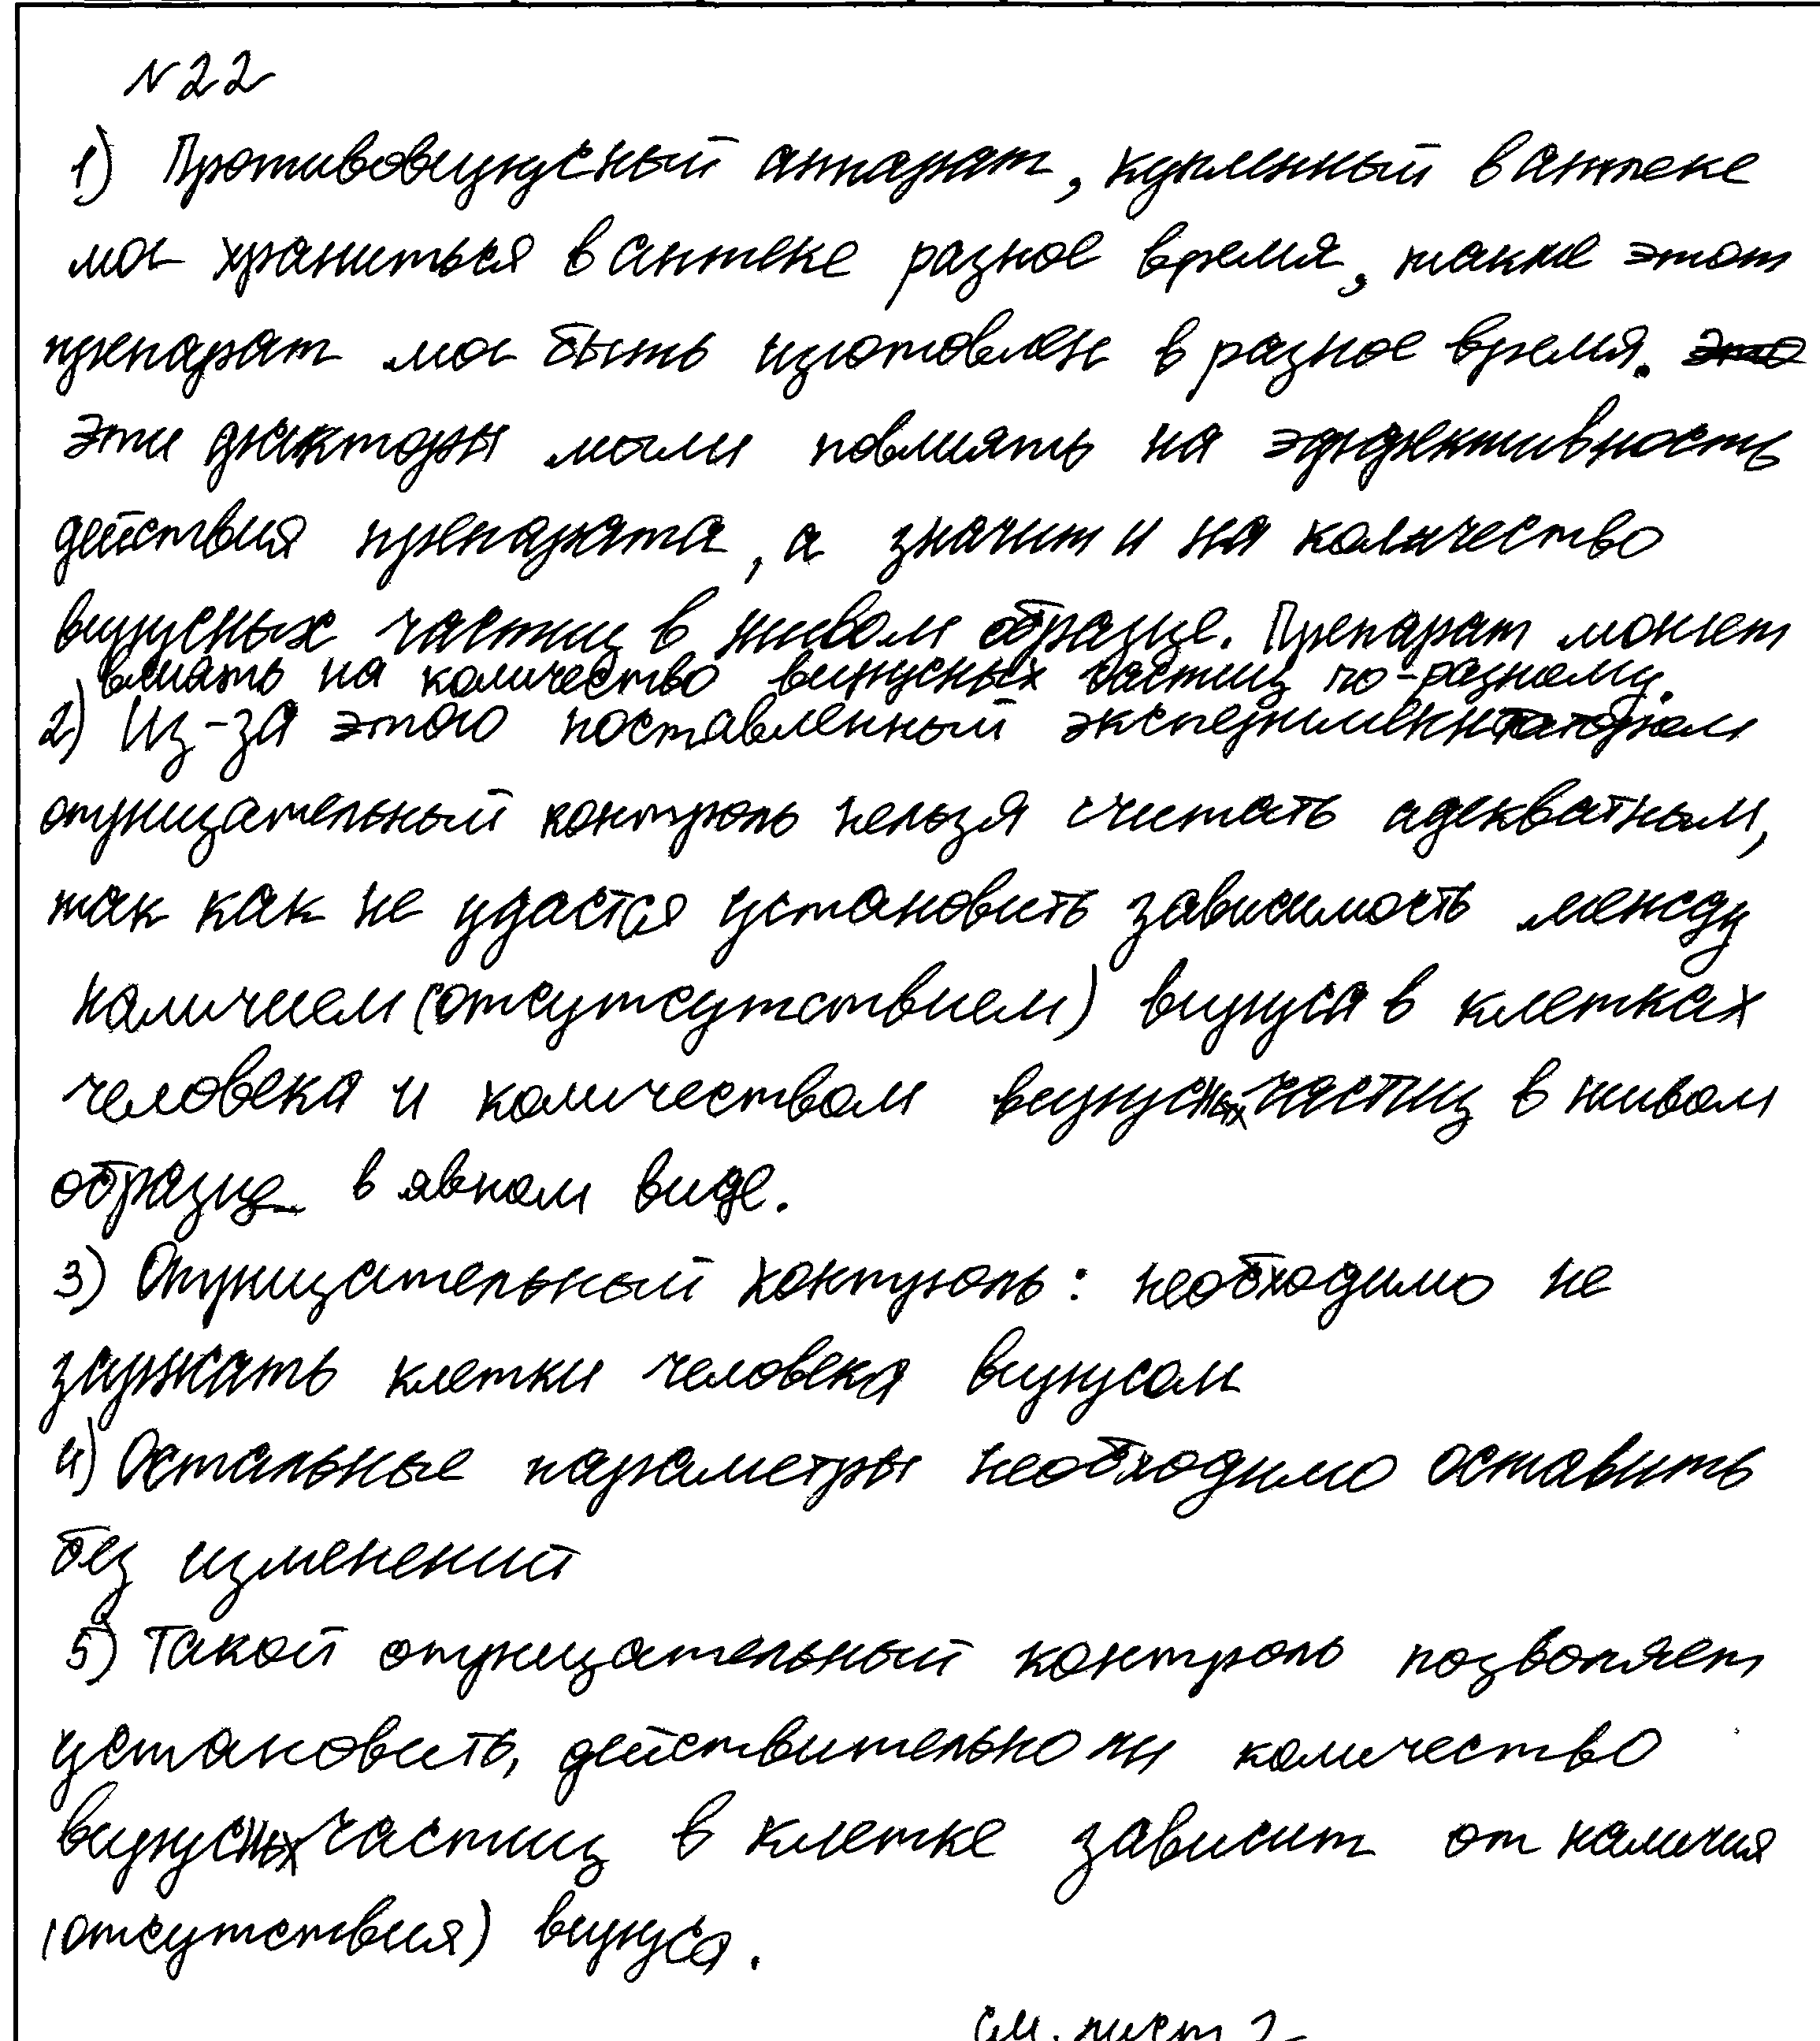 N 22
1) Противовирусный аппарат, купленный в аптеке
мог храниться в аптеке разное время, также этот
препарат мог быть изготовлен в разное время. ~~это~~
Эти факторы могли повлиять на эффективность
действия препарата, а значит и на количество
вирусных частиц в живом образце. Препарат может
влиять на количество вирусных частиц по-разному.
2) Из-за этого поставленный экспериментатором
отрицательный контроль нельзя считать адекватным,
так как не удастся установить зависимость между
наличием (отсутсутствием) вируса в клетках
человека и количеством вирусных частиц в живом
образце в явном виде.
3) Отрицательный контроль: необходимо не
заражать клетки человека вирусом
4) Остальные параметры необходимо оставить
без изменений
5) Такой отрицательный контроль позволяет
установить, действительно ли количество
вирусных частиц в клетке зависит от наличия
(отсутствия) вируса.
см. лист 2